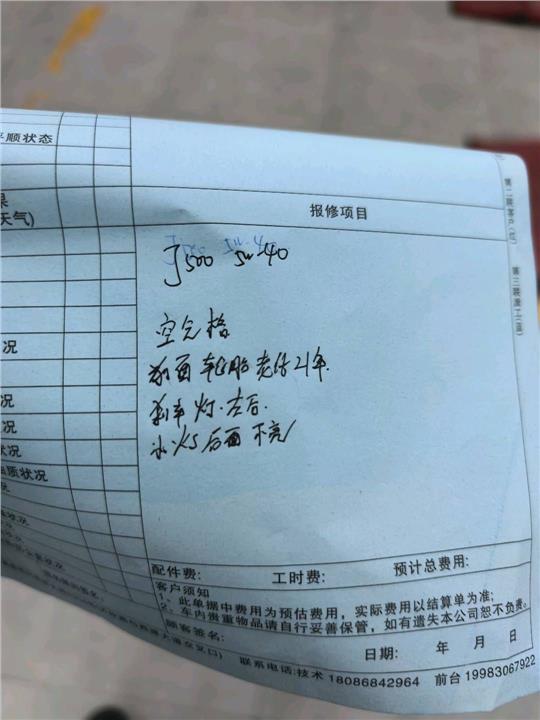 平顺状态
天气)
报修项目
J500 5w-40
空气格
前面轮胎老化21年.
刹车灯.左后.
小灯后面不亮
况
况
况
状况
油质状况
配件费: 工时费: 预计总费用:
客户须知
1、此单据中费用为预估费用，实际费用以结算单为准;
2、车内贵重物品请自行妥善保管，如有遗失本公司恕不负责。
顾客签名:
日期: 年 月 日
联系电话:技术 18086842964 前台 19983067922